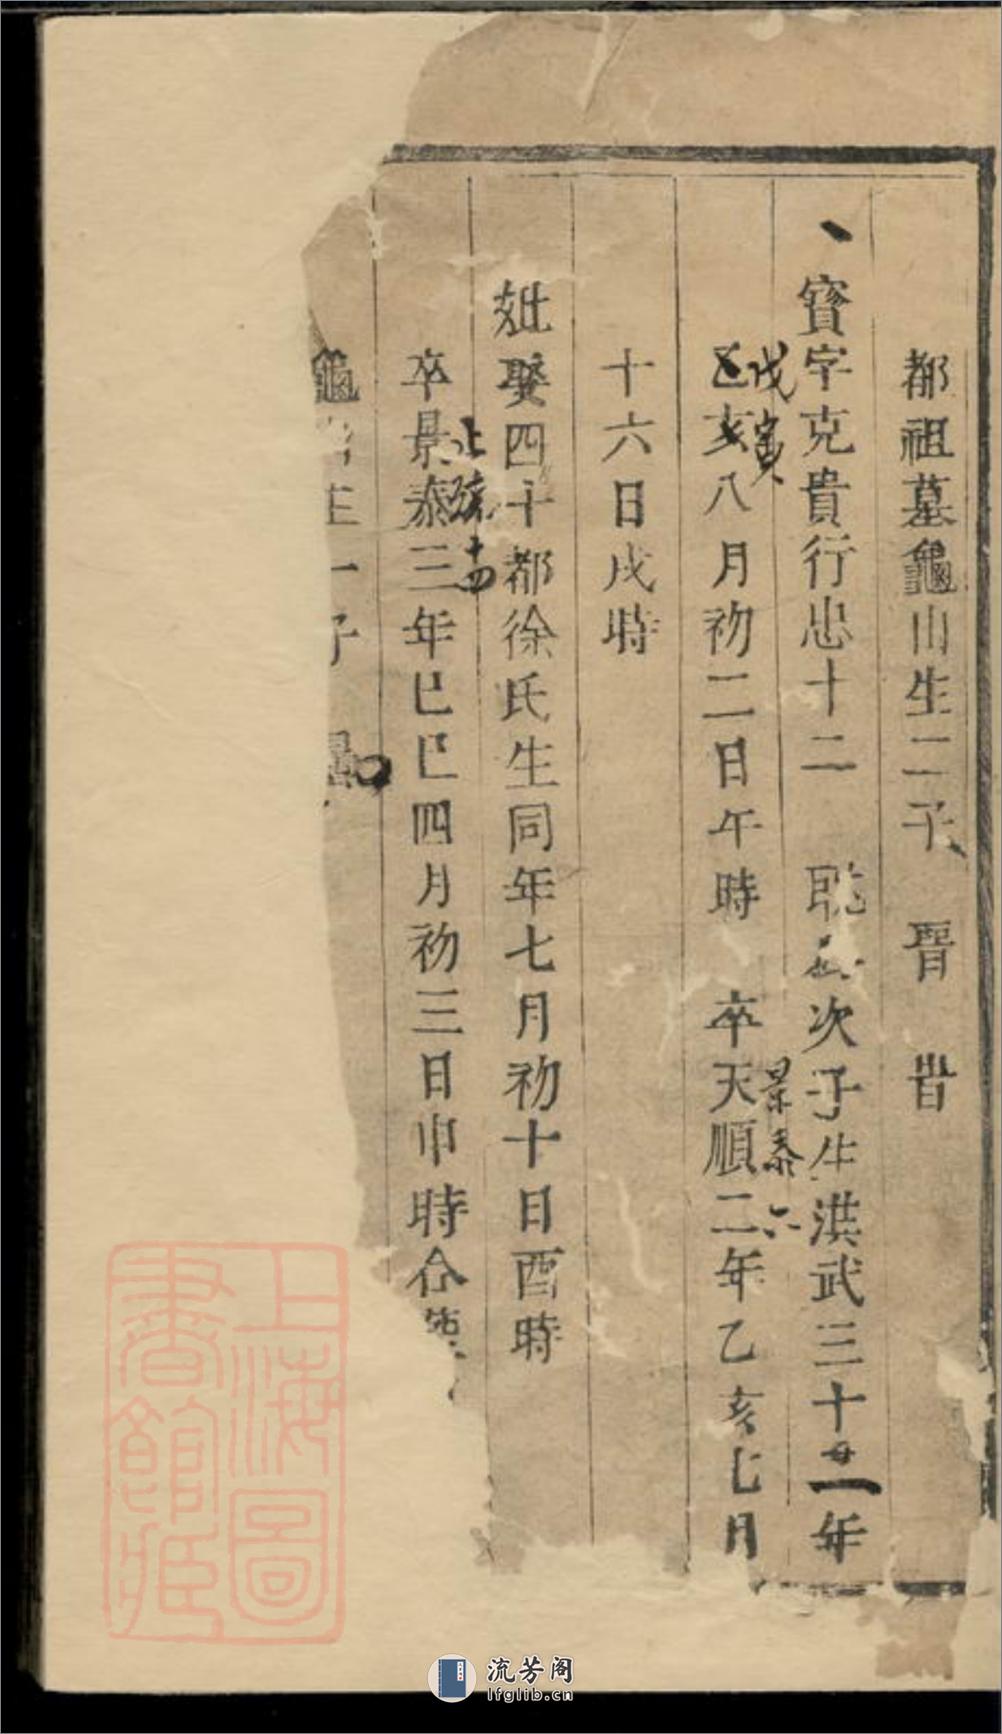 都祖墓龜山生二子 晋 昔
寳字克貴行忠十二 聰 次子生洪武三十二年
乙亥八月初二日午時 卒天順二年乙亥七月
戊寅
景泰六
十六日戌時
妣娶四十都徐氏生同年七月初十日酉時
卒景泰三年己巳四月初三日申時合葬
正統十四
龜山生一子
上海圖書館藏
流芳阁
lfglib.cn